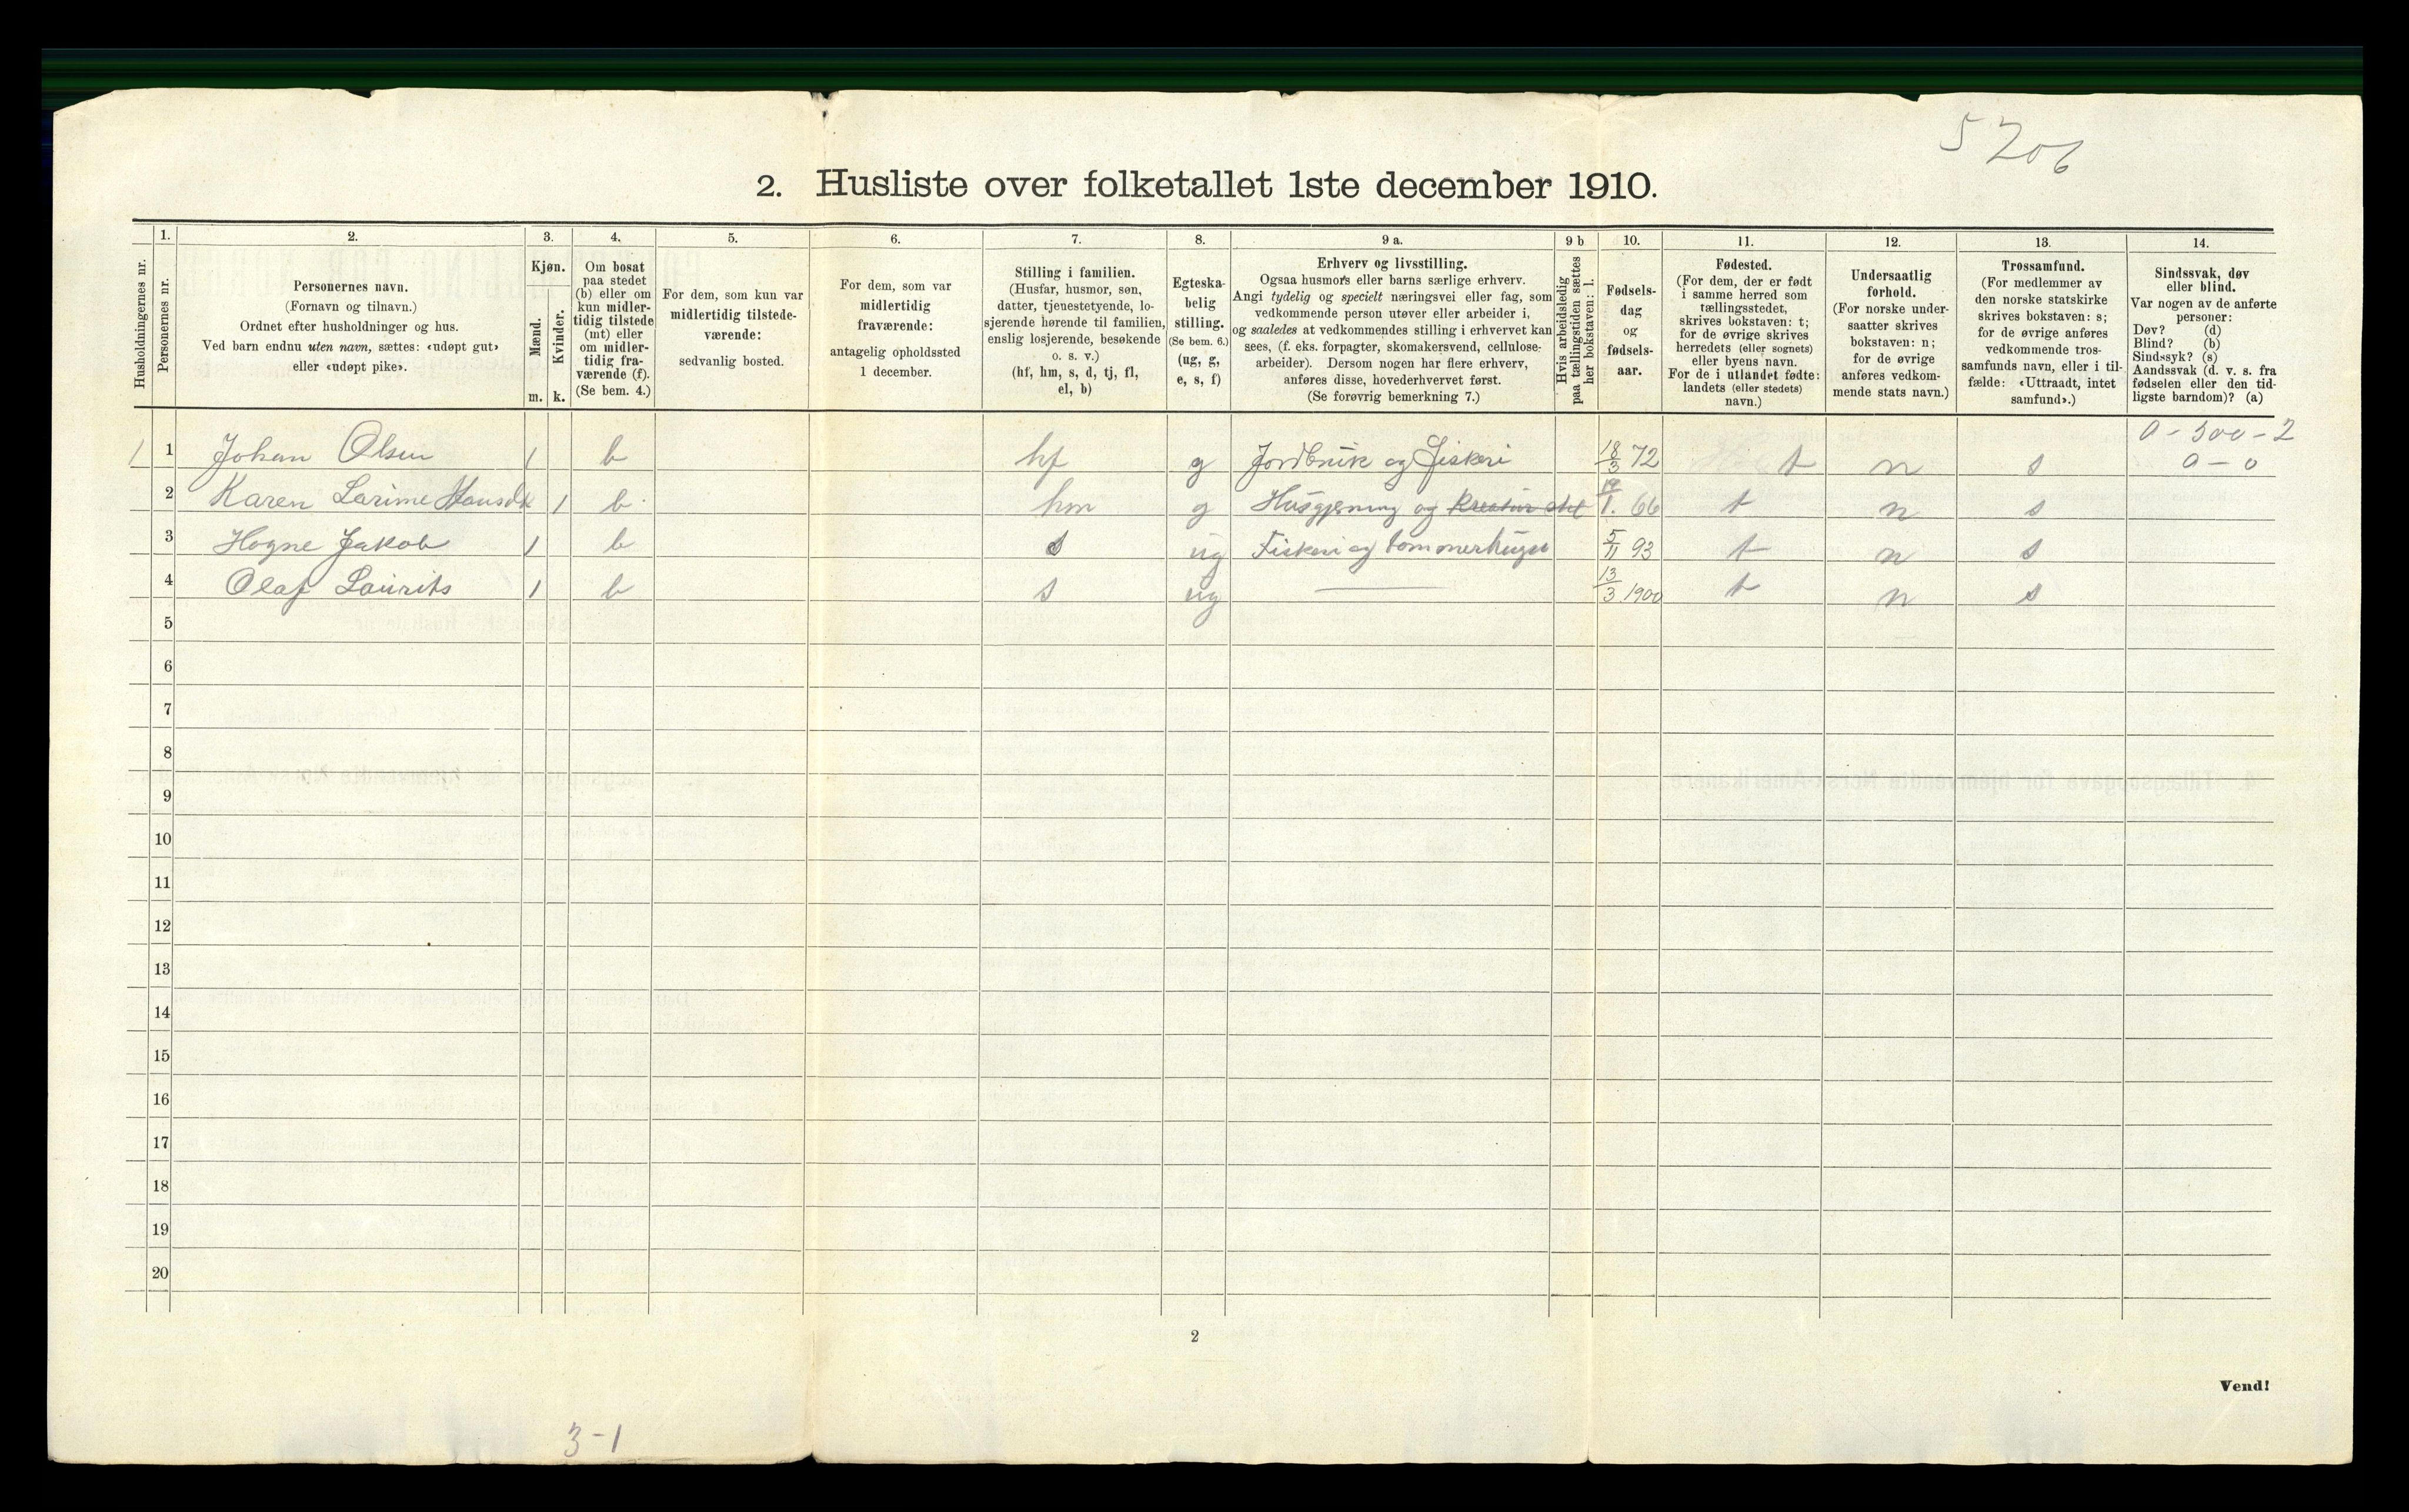 5206
2. Husliste over folketallet 1ste december 1910.
Husholdningernes nr.
1.
Personernes nr.
2.
Personernes navn.
(Fornavn og tilnavn.)
Ordnet efter husholdninger og hus.
Ved barn endnu uten navn, sættes: «udøpt gut»
eller «udøpt pike».
3.
Kjøn.
Mænd.
Kvinder.
m. k.
4.
Om bosat
paa stedet
(b) eller om
kun midler-
tidig tilstede
(mt) eller
om midler-
tidig fra-
værende (f).
(Se bem. 4.)
5.
For dem, som kun var
midlertidig tilstede-
værende:
sedvanlig bosted.
6.
For dem, som var
midlertidig
fraværende:
antagelig opholdssted
1 december.
7.
Stilling i familien.
(Husfar, husmor, søn,
datter, tjenestetyende, lo-
sjerende hørende til familien,
enslig losjerende, besøkende
o. s. v.)
(hf, hm, s, d, tj, fl,
el, b)
8.
Egteska-
belig
stilling.
(Se bem. 6.)
(ug, g,
e, s, f)
9 a.
Erhverv og livsstilling.
Ogsaa husmors eller barns særlige erhverv.
Angi tydelig og specielt næringsvei eller fag, som
vedkommende person utøver eller arbeider i,
og saaledes at vedkommendes stilling i erhvervet kan
sees, (f. eks. forpagter, skomakersvend, cellulose-
arbeider). Dersom nogen har flere erhverv,
anføres disse, hovederhvervet først.
(Se forøvrig bemerkning 7.)
9 b
Hvis arbeidsledig
paa tællingstiden sættes
her bokstaven: l.
10.
Fødsels-
dag
og
fødsels-
aar.
11.
Fødested.
(For dem, der er født
i samme herred som
tællingsstedet,
skrives bokstaven: t;
for de øvrige skrives
herredets (eller sognets)
eller byens navn.
For de i utlandet fødte:
landets (eller stedets)
navn.)
12.
Undersaatlig
forhold.
(For norske under-
saatter skrives
bokstaven: n;
for de øvrige
anføres vedkom-
mende stats navn.)
13.
Trossamfund.
(For medlemmer av
den norske statskirke
skrives bokstaven: s;
for de øvrige anføres
vedkommende tros-
samfunds navn, eller i til-
fælde: «Uttraadt, intet
samfund».)
14.
Sindssvak, døv
eller blind.
Var nogen av de anførte
personer:
Døv? (d)
Blind? (b)
Sindssyk? (s)
Aandssvak (d. v. s. fra
fødselen eller den tid-
ligste barndom)? (a)
0 - 500 - 2
0 - 0
1 1 Johan Olsen 1 b hf g Jordbruk og Fiskeri 18/3 72 t n s
2 Karen Larime 1 b hm g Husgjerning og 1. 66 t n s
3 Hogne Jakob 1 b s ug Fiskeri og tommerhuger 5/11 93 t n s
4 Olaf Laurits 1 b s ug — 13/3 1900 t n s
5
6
7
8
9
10
11
12
13
14
15
16
17
18
19
20
2
Vend!
3-1